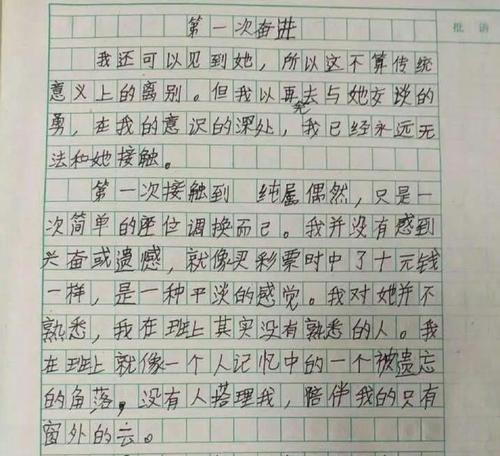 第一次奋进
批语
我还可以见到她，所以这不算传统
意义上的离别。但我以再去与她交谈的
勇，在我的意识的深处，我已经永远无
法和她接触。
第一次接触到 纯属偶然，只是一
次简单的座位调换而已。我并没有感到
兴奋或遗憾，就像买彩票时中了十元钱
一样，是一种平淡的感觉。我对她并不
熟悉，我在班上其实没有熟悉的人。我
在班上就像一个人记忆中的一个被遗忘
的角落，没有人搭理我，陪伴我的只有
窗外的云。